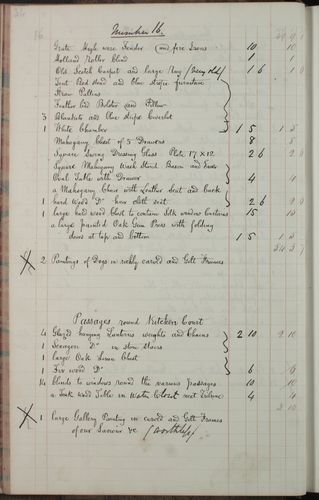 Number 16.
Grate High wire Fender (and) fire Irons 10 10
Holland Roller Blind 1 1
Old Scotch Carpet and large Rug 1 6
Tent Bed Stead and blue stripe furniture
Straw Palliass
Feather bed Bolster and Pillow
3 Blankets and blue stripe Coverlet
1 White Chamber 1 5 1 5
Mahogany Chest of 5 Drawers 8 8
Square Swing Dressing Glass Plate 17 x 12 2 6
Square Mahogany Wash Stand Basin and Ewer
Oval Table with Drawer 4 4
a Mahogany Chair with Leather Seat and back
1 hard Wood Do hair cloth seat 2 6
1 large hard wood Chest to contain Silk window Curtains 15 15
a large painted Oak Gun Press with folding
doors at top and bottom 1 5 1 5
2 Paintings of Dogs in richly carved and Gilt Frames
Passages round Kitchen Court
4 Glazed hanging Lanterns weights and Chains 2 10 2 10
1 Do in stone stairs
1 large Oak Linen Chest
1 Fir wood Do 6 6
14 blinds to windows round the various passages 10 10
a Teak wood Table in Water Closet next 4 4
1 large Gallery Painting in carved and Gilt Frames
of our Saviour &c (worthless)